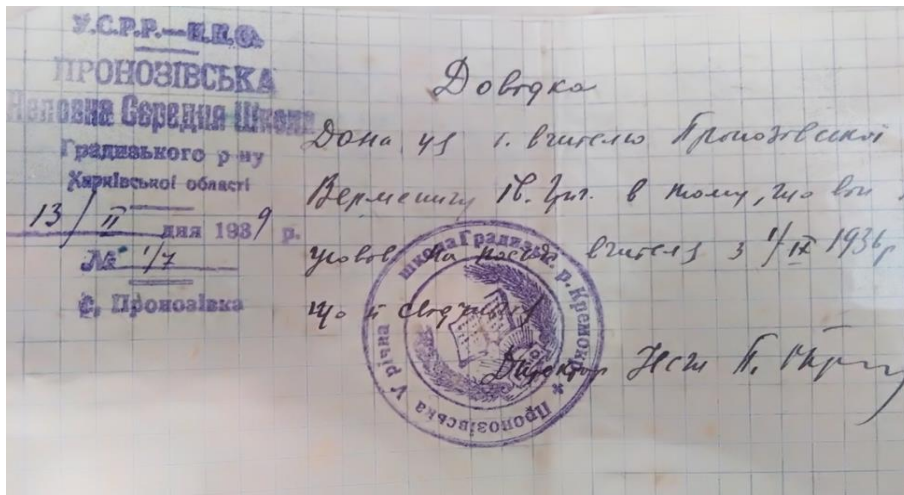 У.С.Р.Р.—Н.К.О.
ПРОНОЗІВСЬКА
Неповна Середня Школа
Градизького р-ну
Харківської області
13/II дня 1939 р.
№ 1/7
С. Пронозівка
Довідка
Дана ця т. вчителю Пронозівської
Верменичу Ів. Гр. в тому, що він
на посаді вчителя з 1/IX 1936 р
що й свідчиться
Директор НСШ П.
Пронозівська V річна школа Градизьк. р. Кременч.